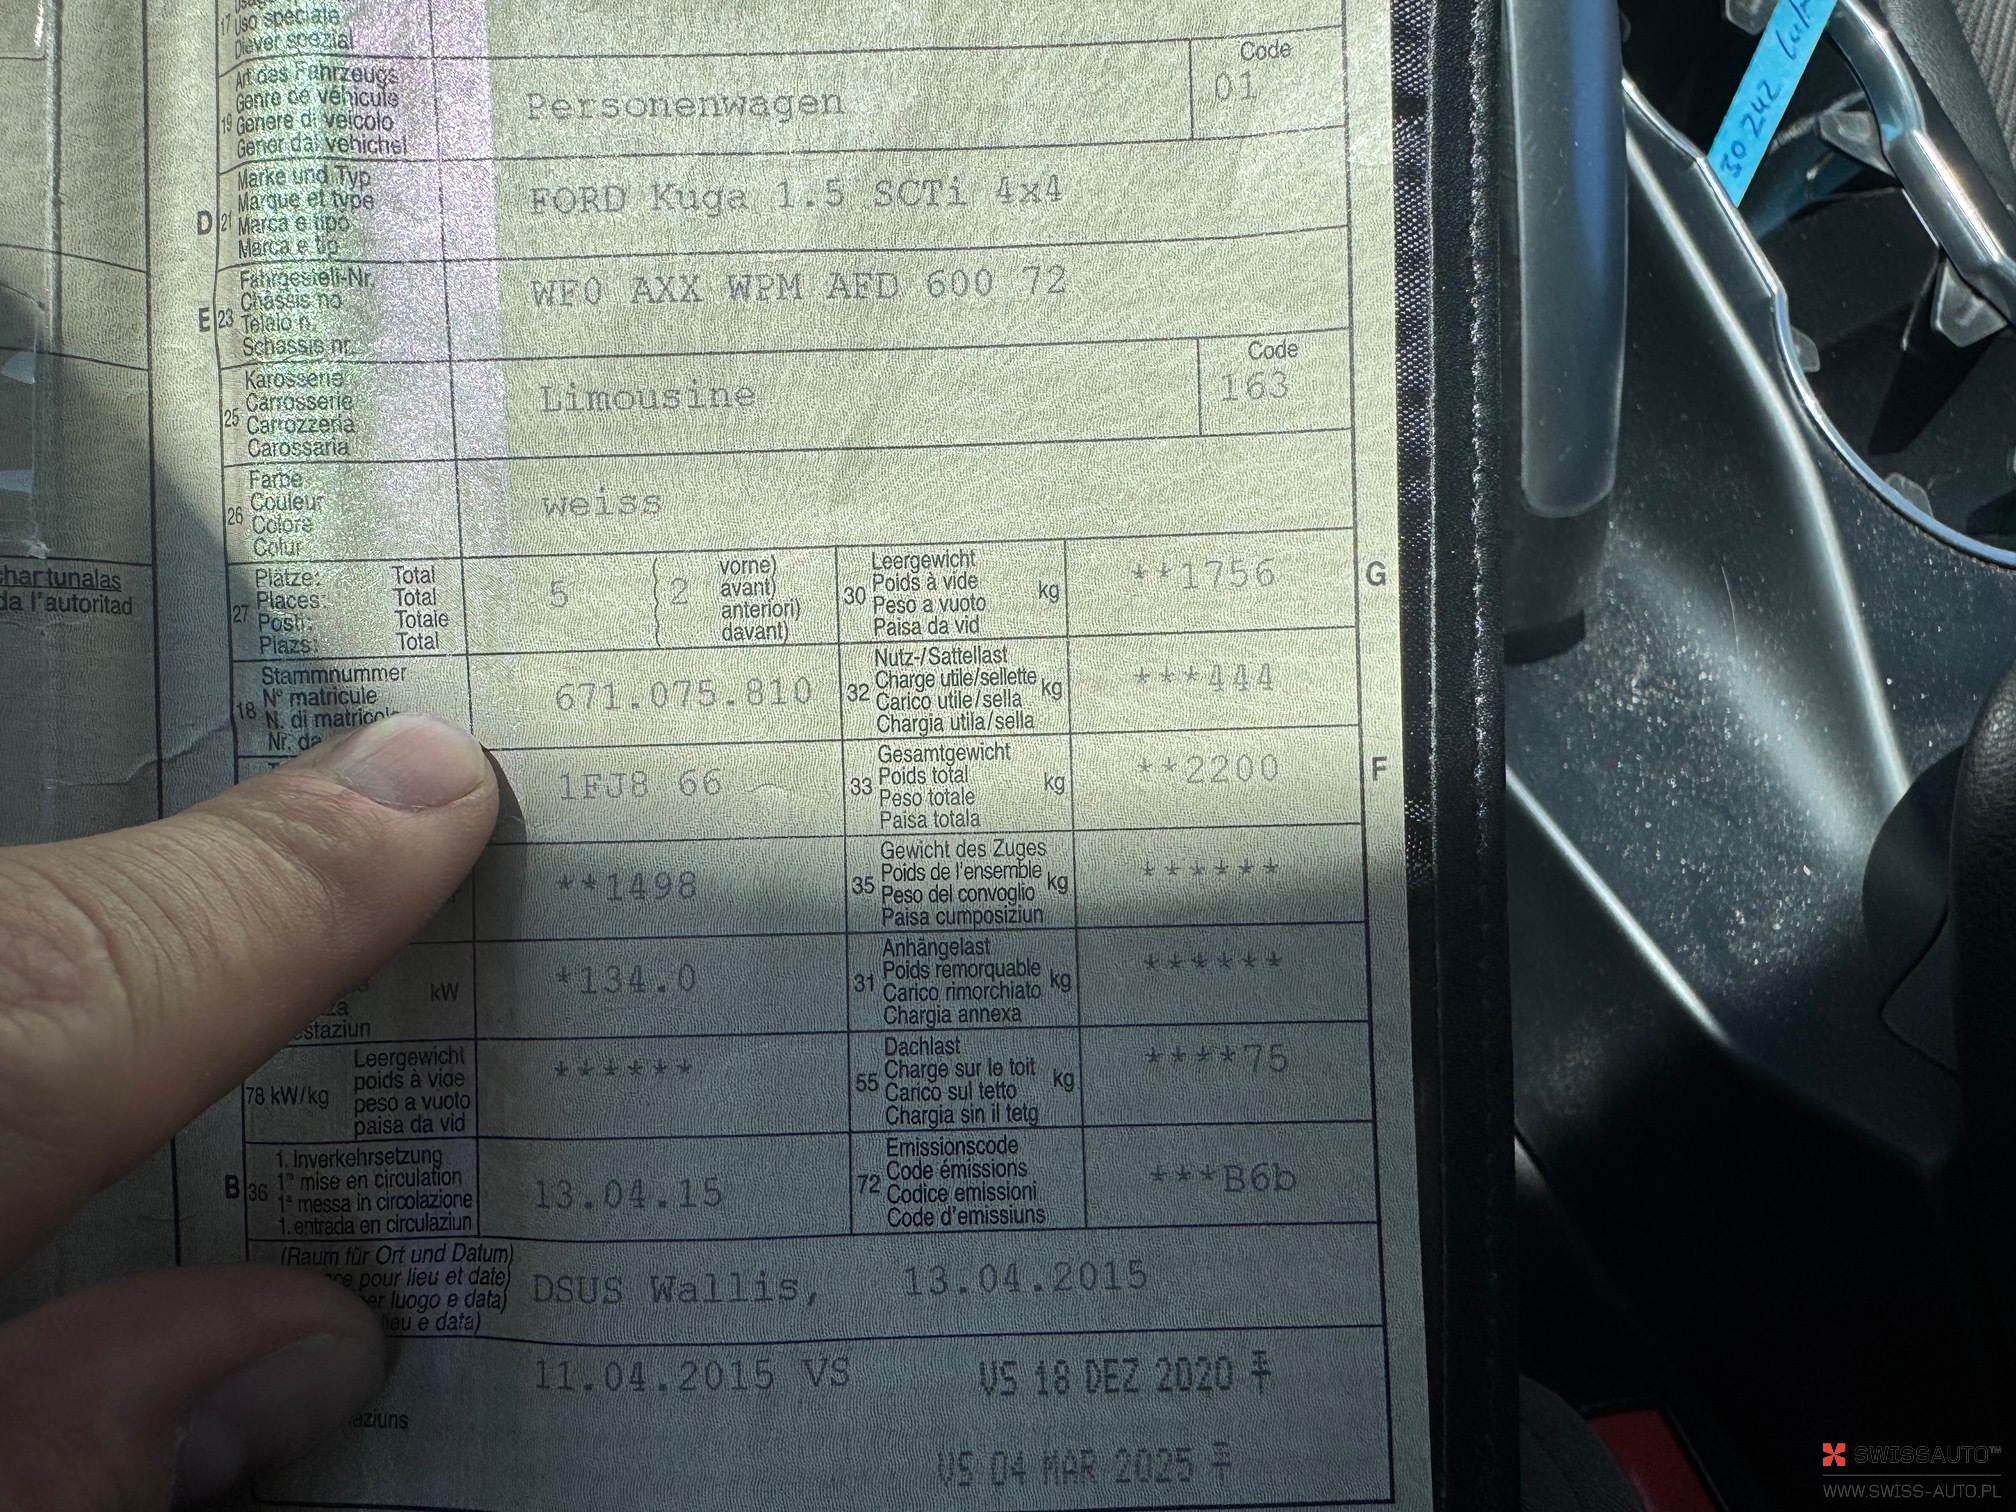 17 Uso speciale
Diever spezial
Art des Fahrzeugs
Genre de véhicule
19 Genere di veicolo
Gener dal vehichel
Personenwagen
Code
01
Marke und Typ
Marque et type
D 21 Marca e tipo
Marca e tip
FORD Kuga 1.5 SCTi 4x4
Fahrgestell-Nr.
Châssis no
E 23 Telaio n.
Schassis nr.
WF0 AXX WPM AFD 600 72
Karosserie
Carrosserie
25 Carrozzeria
Carossaria
Limousine
Code
163
Farbe
Couleur
26 Colore
Colur
weiss
Plätze: Total
Places: Total
27 Posti: Totale
Plazs: Total
5 ( 2
vorne)
avant)
anteriori)
davant)
Leergewicht
30 Poids à vide kg
Peso a vuoto
Paisa da vid
**1756
G
Stammnummer
N° matricule
18 N. di matricol
Nr. da
671.075.810
Nutz-/Sattellast
32 Charge utile/sellette kg
Carico utile/sella
Chargia utila/sella
***444
1FJ8 66
Gesamtgewicht
33 Poids total kg
Peso totale
Paisa totala
**2200
F
**1498
Gewicht des Zuges
35 Poids de l'ensemble kg
Peso del convoglio
Paisa cumposiziun
******
kW
staziun
*134.0
Anhängelast
31 Poids remorquable kg
Carico rimorchiato
Chargia annexa
******
78 kW/kg
Leergewicht
poids à vide
peso a vuoto
paisa da vid
******
Dachlast
55 Charge sur le toit kg
Carico sul tetto
Chargia sin il tetg
****75
1. Inverkehrsetzung
B 36 1ª mise en circulation
1ª messa in circolazione
1. entrada en circulaziun
13.04.15
Emissionscode
72 Code émissions
Codice emissioni
Code d'emissiuns
***B6b
(Raum für Ort und Datum)
ce pour lieu et date)
er luogo e data)
lieu e data)
DSUS Wallis, 13.04.2015
11.04.2015 VS
VS 18 DEZ 2020
aziuns
VS 04 MAR 2025
char tunalas
da l'autoritad
30242
SWISSAUTO™
WWW.SWISS-AUTO.PL